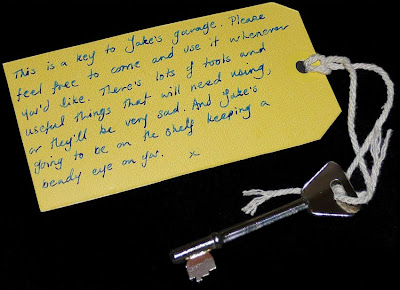 This is a key to Jake's garage. Please
feel free to come and use it whenever
you'd like. There's lots of tools and
useful things that will need using,
or they'll be very sad. And Jake's
going to be on the shelf keeping a
beady eye on you. x